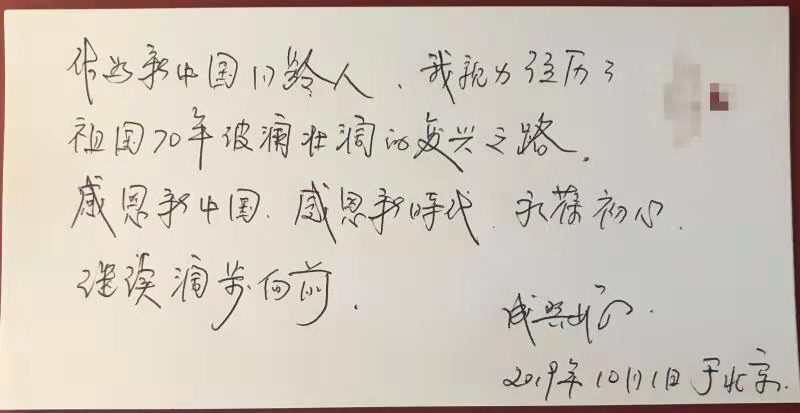 作为新中国同龄人、我亲力经历了
祖国70年波澜壮阔的复兴之路。
感恩新中国、感恩新時代、永葆初心、
继续阔步向前。
2019年10月1日于北京.